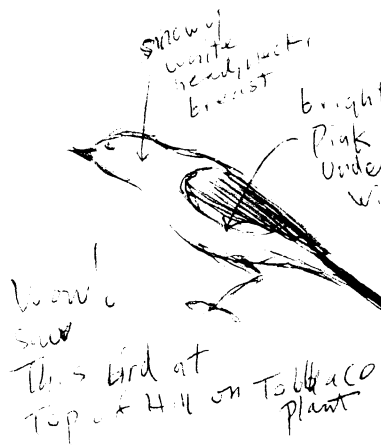 snowy
white
head, neck,
breast
bright
Pink
Under
Wi
saw
This bird at
Top of Hill on Tobbaco
plant